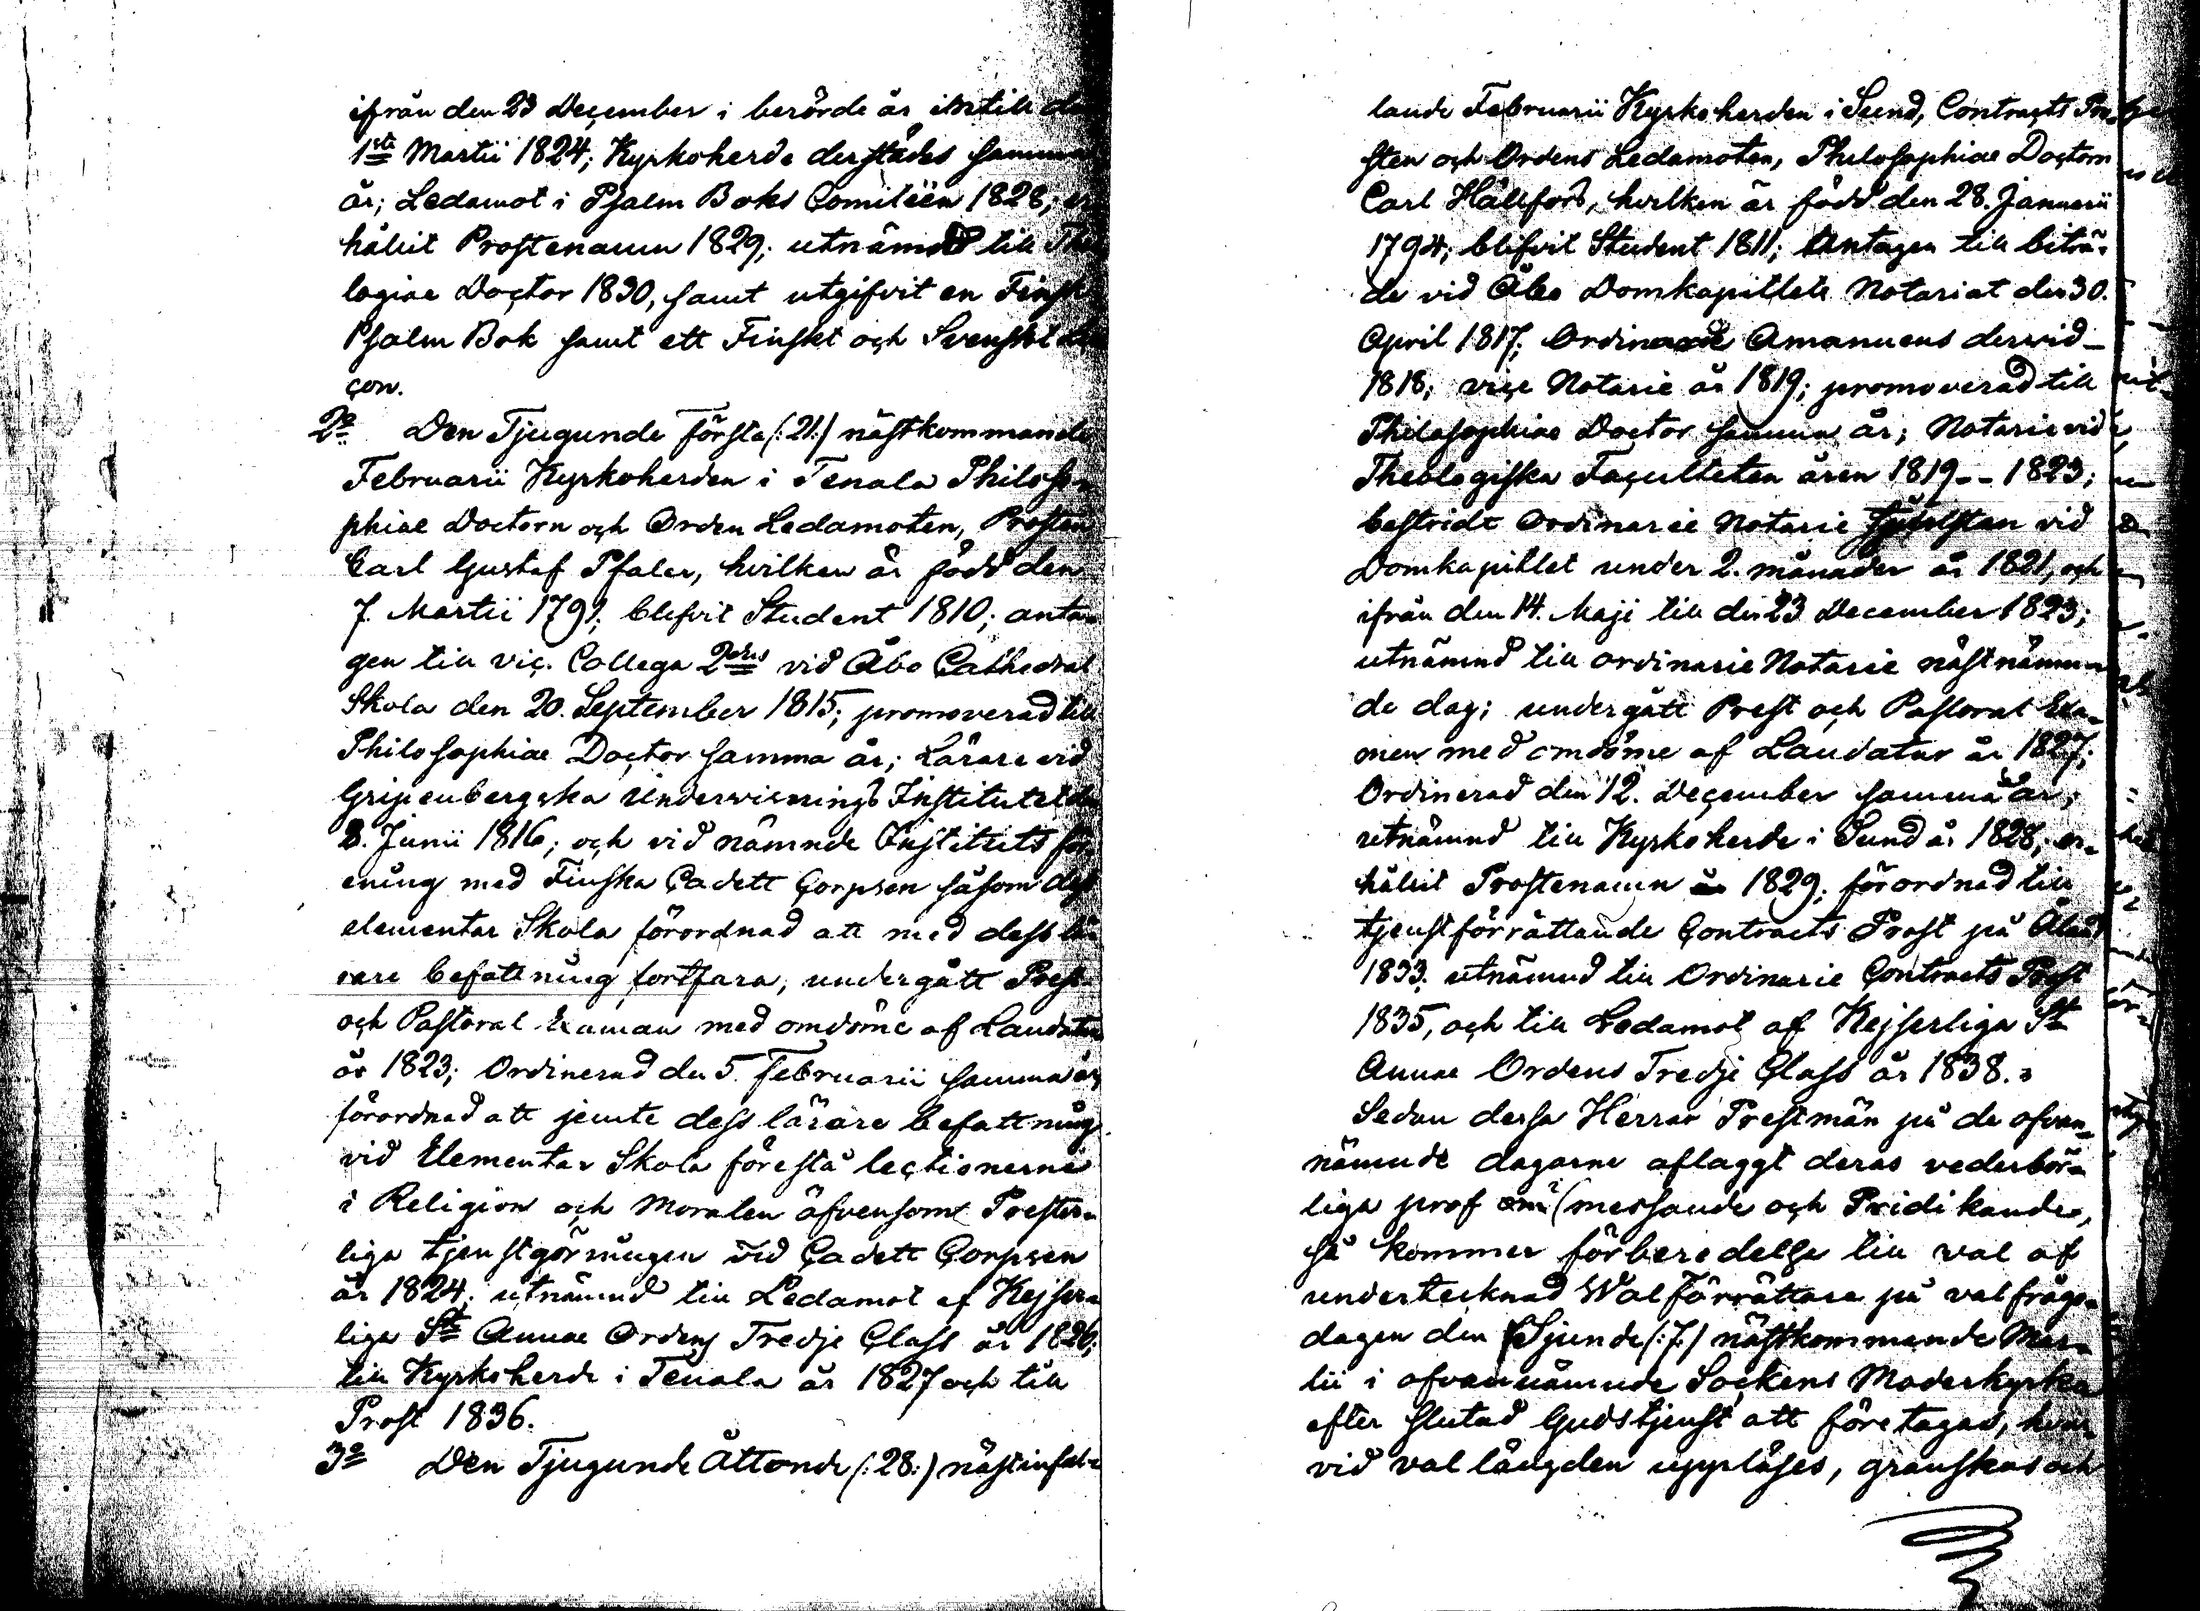 ifrån den 23 December i berörde år intill den
1sta Martii 1824; Kyrkoherde derstädes samma
år; Ledamot i Psalm Boks Comitéen 1828; er-
hållit Prostenamn 1829; utnämnd till Theo
logiae Doctor 1830, samt utgifvit en Finsk
Psalm Bok samt ett Finskt och Svenskt
çon.
2o Den Tjugunde första (:21:) nästkommande
Februarii Kyrkoherden i Tenala Philoso-
phiae Doctorn och Orden Ledamoten, Prosten
Carl Gustaf Pfaler, hvilken är född den
7. Martii 1791; blifvit Student 1810; anta-
gen till vic. Collega 2dus vid Åbo Cathedral
Skola den 20. September 1815; promoverad till
Philosophiae Doctor samma år; Lärare vid
Gripenbergska Underwisnings Institutet den
8. Junii 1816; och vid nämnde Institutets för-
ening med Finska Cadett Corpsen såsom dess
elementar Skola förordnad att med dess lä-
rare befattning fortfara; undergått Prest-
och Pastoral Examen med omdöme af Laudatur
år 1823; Ordinerad den 5. Februarii samma år,
förordnad att jemte dess lärare befattning
vid Elementar Skola förestå lectionerne
i Religion och Moralen äfvensom Prester-
liga tjenstgörningen vid Cadett Corpsen
år 1824; utnämnd till Ledamot af Kejser-
liga St Annae Ordens Tredje Class år 1826;
till Kyrkoherde i Tenala år 1827 och till
Prost 1836.
3o Den Tjugunde Åttonde (:28:) nästinfal-
lande Februarii Kyrkoherden i Sund, Contracts Pro-
sten och Ordens Ledamoten, Philosophiae Doctorn
Carl Hällfors, hvilken är född den 28. Januarii
1794; blifvit Student 1811; antagen till biträ-
de vid Åbo Domkapitlets Notariat den 30.
April 1817; Ordinarie Amanuens dervid
1818; vice Notarie år 1819; promoverad till
Philosophiae Doctor samma år; Notarie vid
Theologiska Faculteten åren 1819-- 1823;
bestridt Ordinarie Notarie tjensten vid
Domkapitlet under 2. månader år 1821, och
ifrån den 14. Maji till den 23 December 1823;
utnämnd till ordinarie Notarie nästnämn-
de dag; undergått Prest och Pastoral Exa-
men med omdöme af Laudatur år 1827;
Ordinerad den 12. December samma år;
utnämnd till Kyrkoherde i Sund år 1828; er-
hållit Prostenamn år 1829; förordnad till
tjenstförrättande Contracts Prost på Åland
1833; utnämnd till Ordinarie Contracts Prost
1835, och till Ledamot af Kejserliga St
Annae Ordens Tredje Class år 1838.
Sedan dessa Herrar Prestmän på de ofvan-
nämnde dagarne aflaggt deras vederbör-
liga prof i messande och Predikande,
så kommer förberedelse till val af
undertecknad Walförrättare på valfråge-
dagen den Sjunde (:7:) nästkommande Mar-
tii i ofvannämnde Sockens Moderkyrka
efter slutad Gudstjenst att företagas, hvar-
vid vallängden uppläses, granskas och